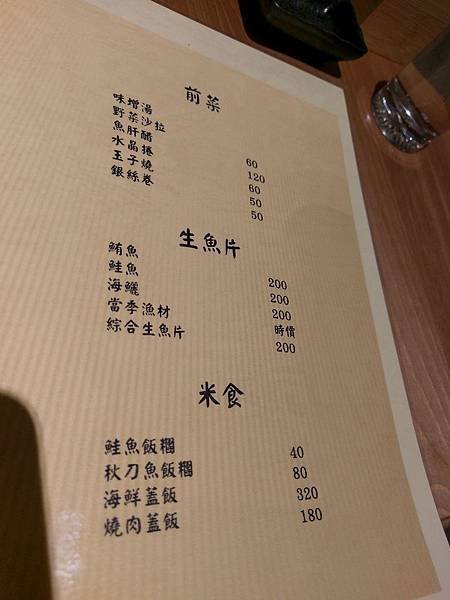 前菜
味增湯
野菜沙拉 60
魚肝醋 120
水晶捲 60
玉子燒 50
銀絲卷 50
生魚片
鮪魚 200
鮭魚 200
海鱺 200
當季漁材 時價
綜合生魚片 200
米食
鮭魚飯糰 40
秋刀魚飯糰 80
海鮮蓋飯 320
燒肉蓋飯 180